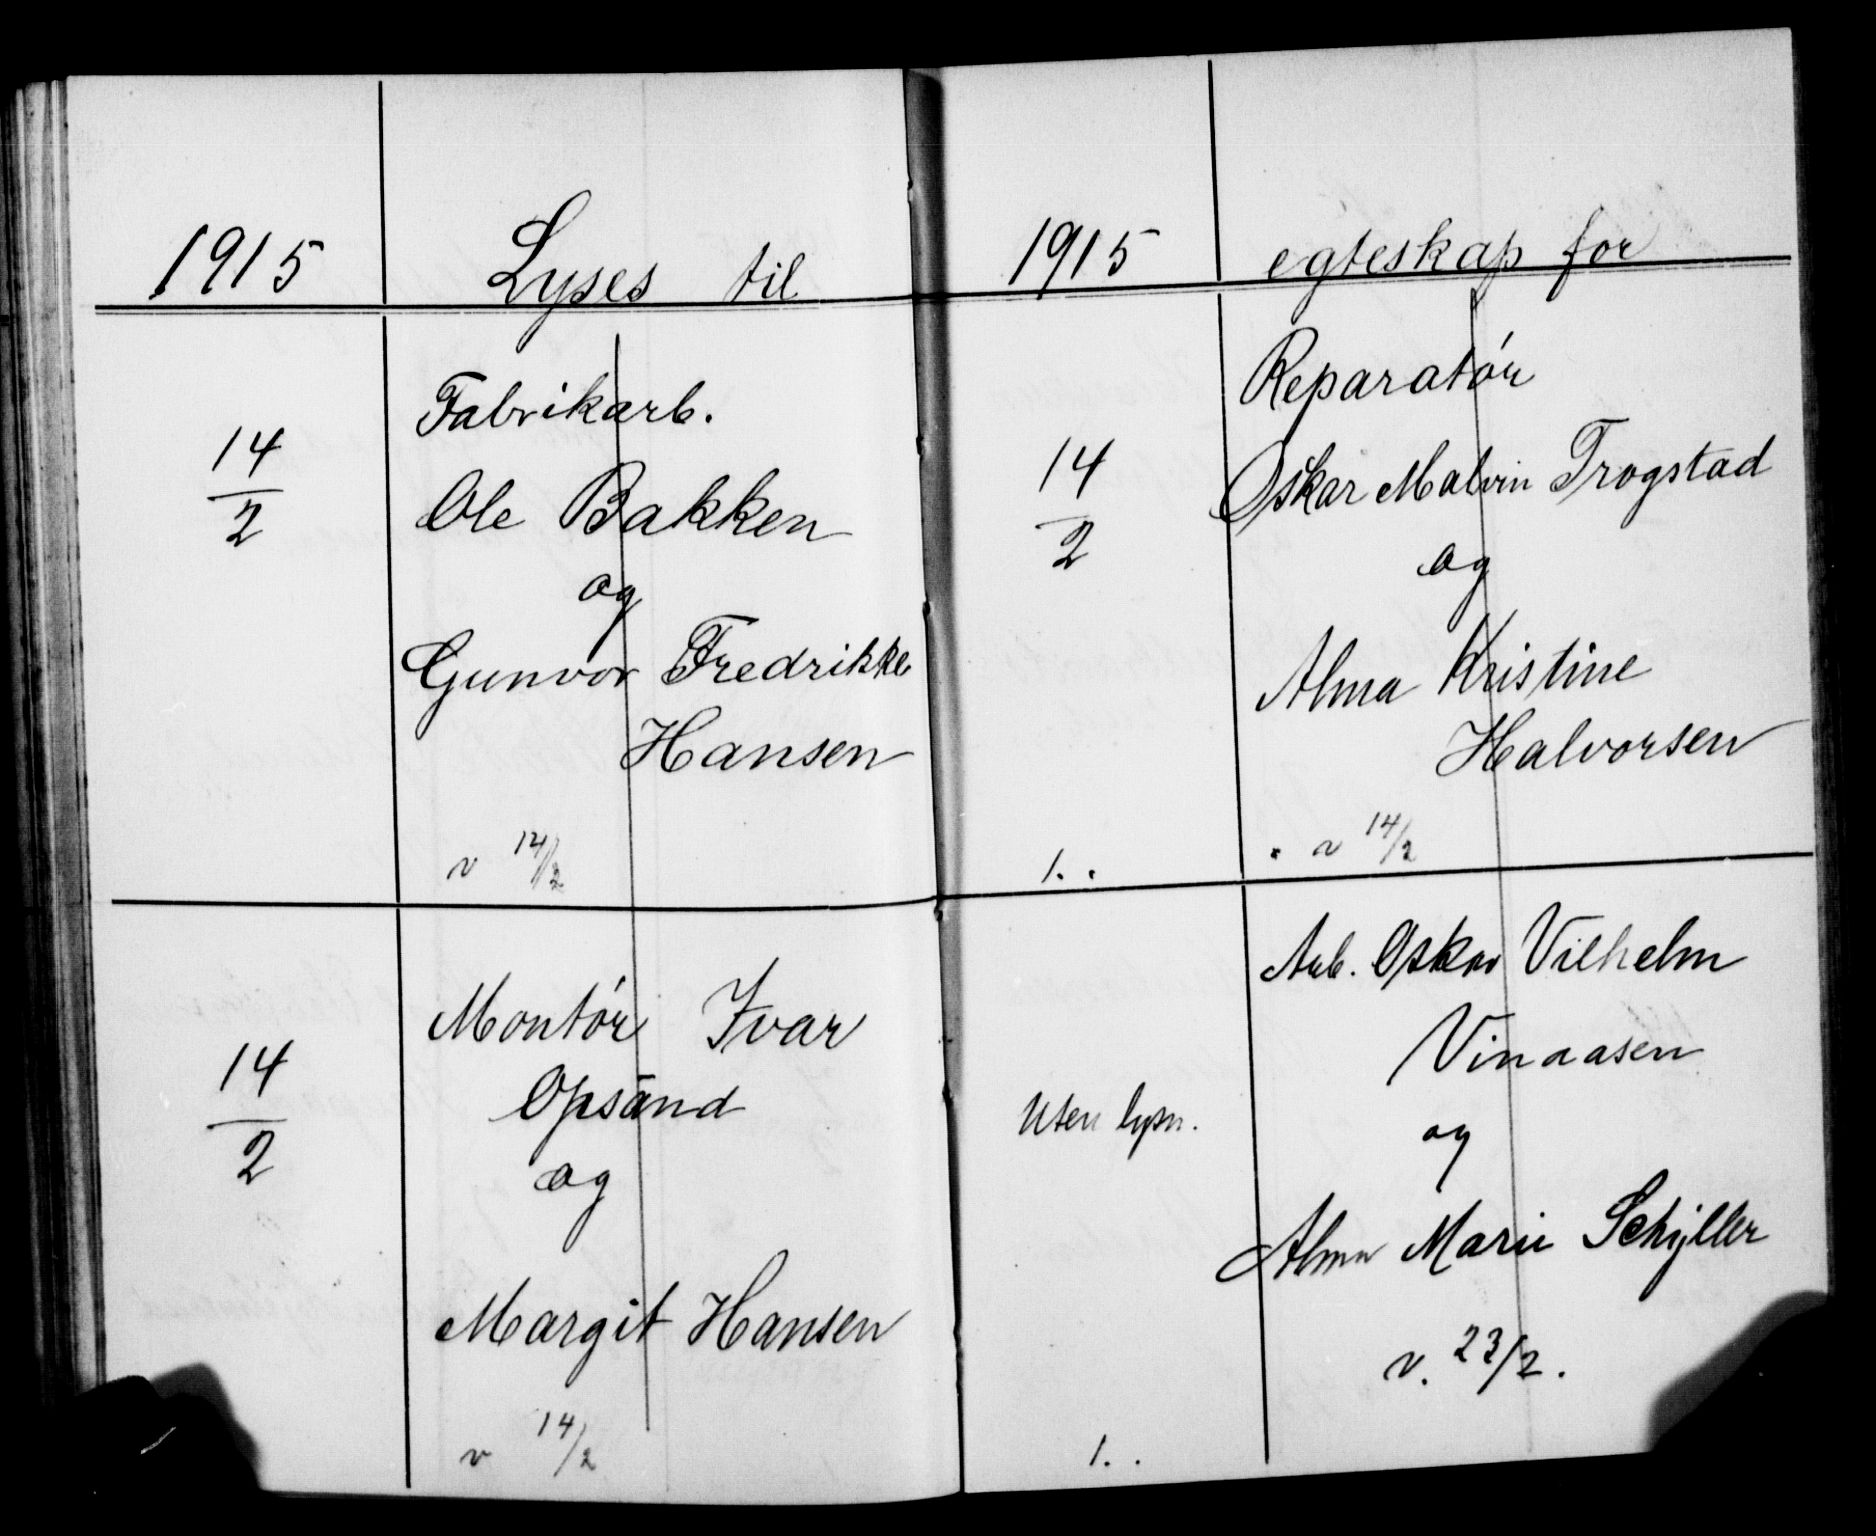 1915 Lyses til
14/2 Fabrikarb.
Ole Bakken
og
Gunvor Fredrikke
Hansen
v 14/2
14/2 Montör Ivar
Opsand
og
Margit Hansen
v 14/2
1915 egteskap for
Reparatör
14/2 Oskar Malvin Trogstad
og
Alma Kristine
Halvorsen
1. . . v 14/2
Arb. Oskar Vilhelm
Vinaasen
Uten lysn. og
Alma Marie Schyller
v. 23/2.
1. .